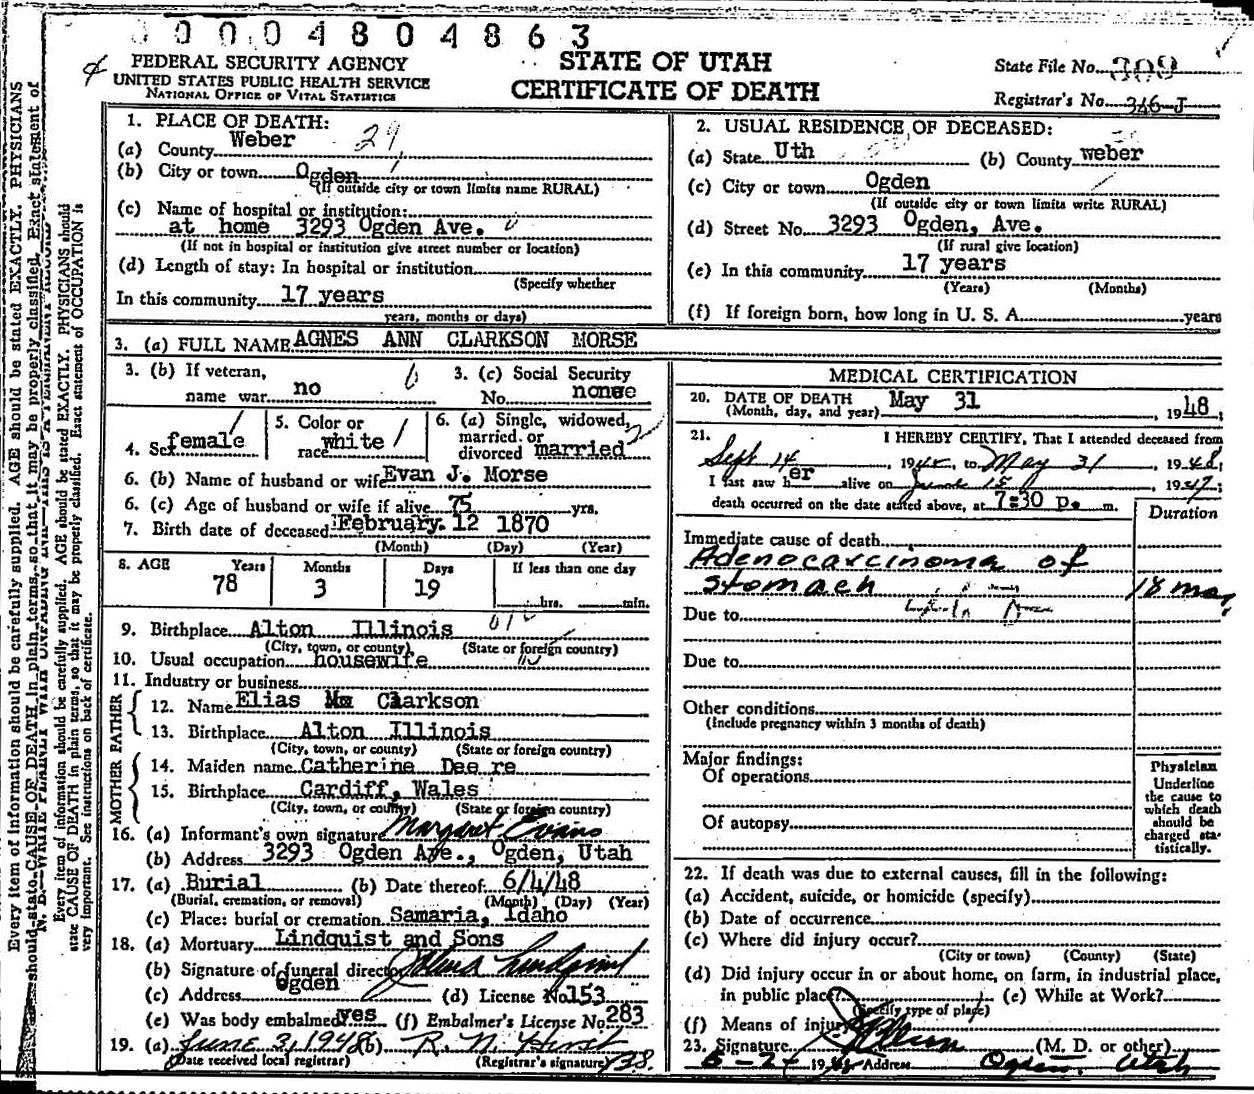 0 0 0 0 4 8 0 4 8 6 3
FEDERAL SECURITY AGENCY
UNITED STATES PUBLIC HEALTH SERVICE
NATIONAL OFFICE OF VITAL STATISTICS
STATE OF UTAH
CERTIFICATE OF DEATH
State File No. 309
Registrar's No. 346-J
1. PLACE OF DEATH:
(a) County Weber 29
(b) City or town Ogden
(If outside city or town limits name RURAL)
(c) Name of hospital or institution:
at home 3293 Ogden Ave.
(If not in hospital or institution give street number or location)
(d) Length of stay: In hospital or institution
(Specify whether
In this community 17 years
years, months or days)
2. USUAL RESIDENCE OF DECEASED:
(a) State Uth (b) County weber
(c) City or town Ogden
(If outside city or town limits write RURAL)
(d) Street No. 3293 Ogden, Ave.
(If rural give location)
(e) In this community 17 years
(Years) (Months)
(f) If foreign born, how long in U. S. A. years
3. (a) FULL NAME AGNES ANN CLARKSON MORSE
3. (b) If veteran,
name war no
3. (c) Social Security
No. nonee
4. Sex female
5. Color or
race white
6. (a) Single, widowed,
married, or
divorced married
6. (b) Name of husband or wife Evan J. Morse
6. (c) Age of husband or wife if alive 75 yrs.
7. Birth date of deceased February 12 1870
(Month) (Day) (Year)
8. AGE Years Months Days If less than one day
78 3 19
hrs. min.
9. Birthplace Alton Illinois
(City, town, or county) (State or foreign country)
10. Usual occupation housewife
11. Industry or business
FATHER
12. Name Elias Clarkson
13. Birthplace Alton Illinois
(City, town, or county) (State or foreign country)
MOTHER
14. Maiden name Catherine Dee re
15. Birthplace Cardiff, Wales
(City, town, or county) (State or foreign country)
16. (a) Informant's own signature Margaret Evans
(b) Address 3293 Ogden Ave., Ogden, Utah
17. (a) Burial (b) Date thereof 6/4/48
(Burial, cremation, or removal) (Month) (Day) (Year)
(c) Place: burial or cremation Samaria, Idaho
18. (a) Mortuary Lindquist and Sons
(b) Signature of funeral director Lindquist
(c) Address Ogden (d) License No. 153
(e) Was body embalmed yes (f) Embalmer's License No. 283
19. (a) June 3, 1948 (b) R. N. Hirst
(Date received local registrar) (Registrar's signature) 38.
MEDICAL CERTIFICATION
20. DATE OF DEATH
(Month, day, and year) May 31, 1948;
21. I HEREBY CERTIFY, That I attended deceased from
Sept 14, 1945, to May 31, 1948;
I last saw her alive on June 15, 1947;
death occurred on the date stated above, at 7:30 p. m.
Duration
Immediate cause of death
Adenocarcinoma of
stomach 18 mos
Due to
Due to
Other conditions
(Include pregnancy within 3 months of death)
Major findings:
Of operations
Of autopsy
Physician
Underline
the cause to
which death
should be
charged sta-
tistically.
22. If death was due to external causes, fill in the following:
(a) Accident, suicide, or homicide (specify)
(b) Date of occurrence
(c) Where did injury occur?
(City or town) (County) (State)
(d) Did injury occur in or about home, on farm, in industrial place,
in public place? (e) While at Work?
(Specify type of place)
(f) Means of injury
23. Signature (M. D. or other)
6-2- 1948 Address Ogden, Utah
Every item of information should be carefully supplied. AGE should be stated EXACTLY. PHYSICIANS
should state CAUSE OF DEATH in plain terms, so that it may be properly classified. Exact statement of
Every item of information should be carefully supplied. AGE should be stated EXACTLY. PHYSICIANS should
state CAUSE OF DEATH in plain terms, so that it may be properly classified. Exact statement of OCCUPATION is
very important. See instructions on back of certificate.